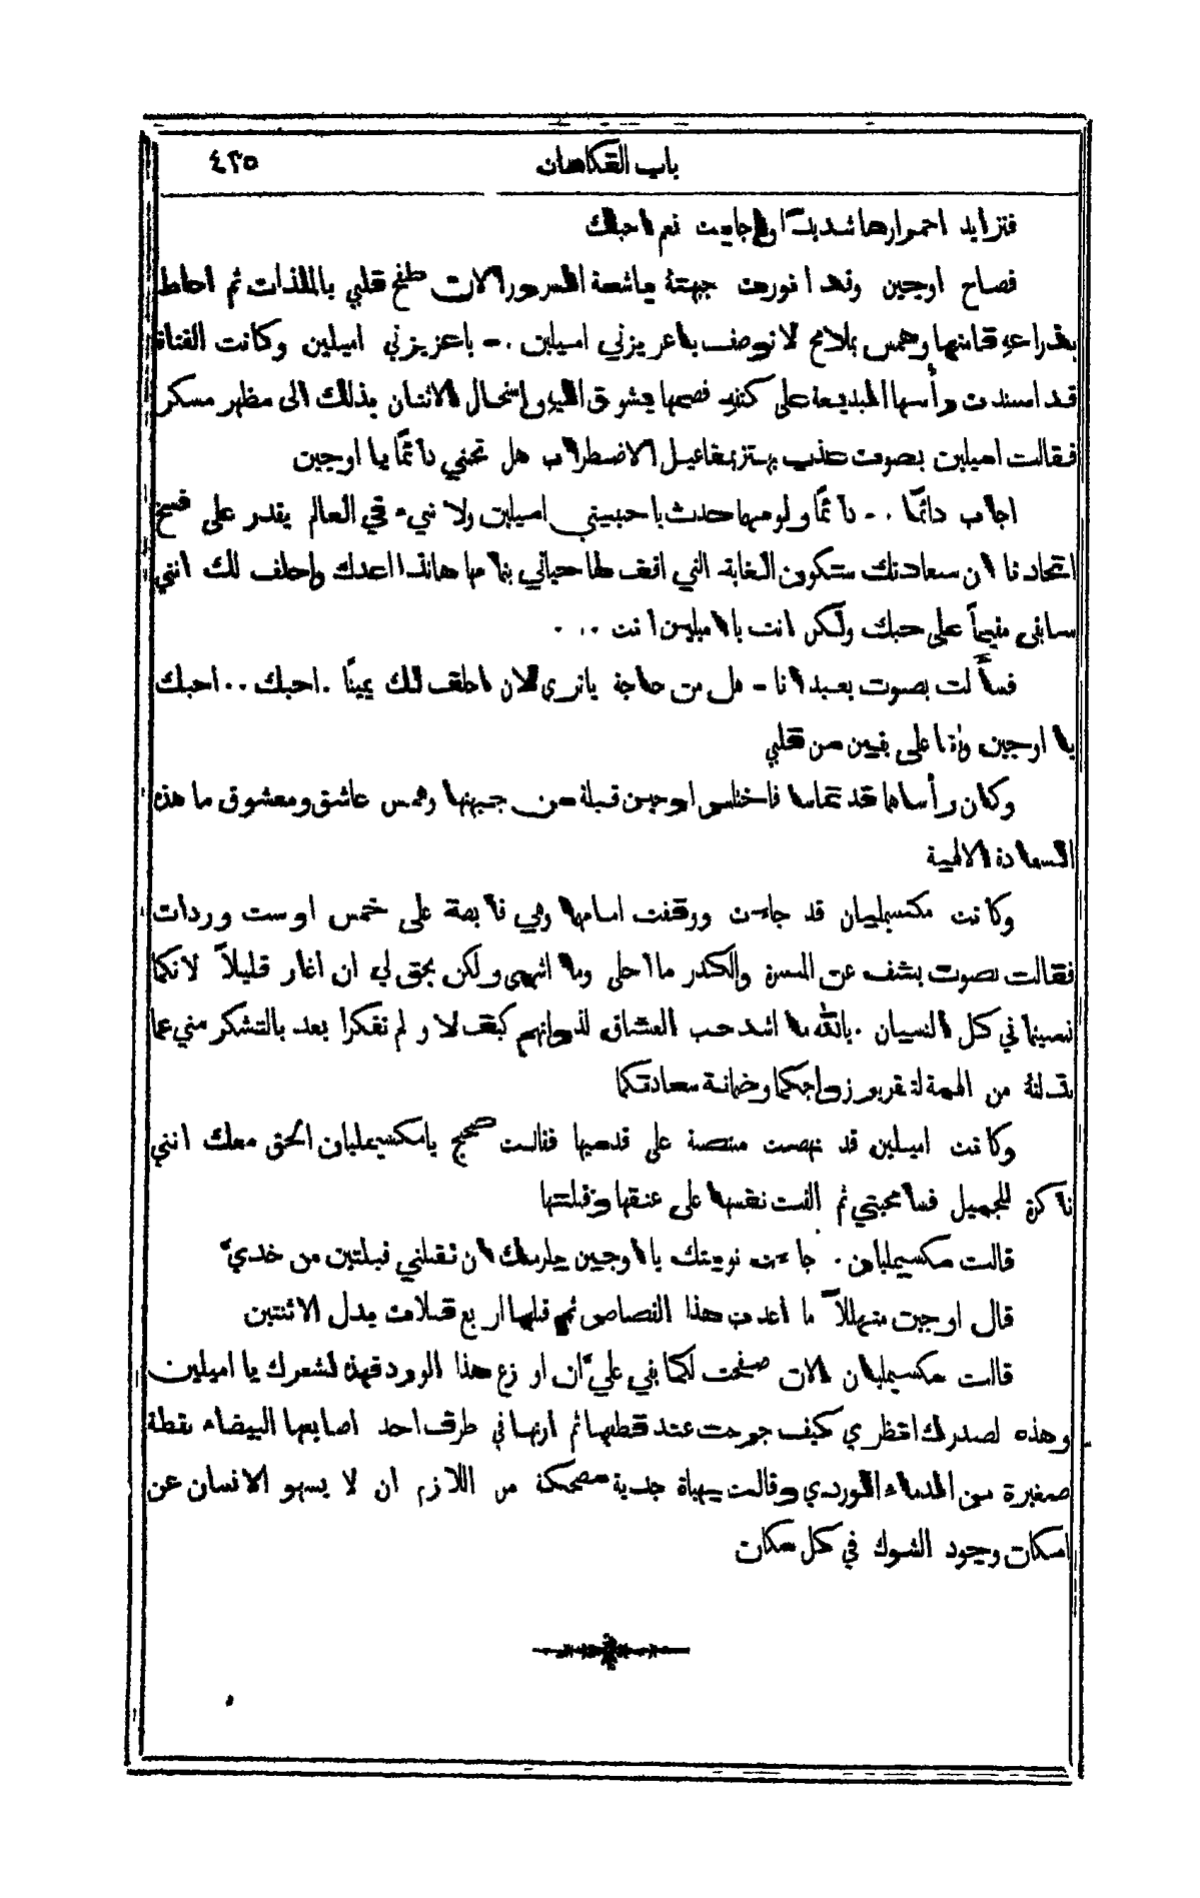 باب الفكاهات ٤٢٥
فتزايد احمرارها شديدًا واجابت نعم احبك
فصاح اوجين وقد انورت جبهته باشعة السرور الان طفح قلبي بالملذات ثم احاط
بذراعه قامتها وهمس بملامح لا توصف يا عزيزتي اميلين . - يا عزيزتي اميلين وكانت الفتاة
قد اسندت رأسها البديعة على كتفه فضمها بشوق اليه واستحال الاثنان بذلك الى مظهر مسكر
فقالت اميلين بصوت عذب يهتز بمفاعيل الاضطراب هل تحبني دائمًا يا اوجين
اجاب دائمًا . - دائمًا ولو مهما حدث يا حبيبتي اميلين ولا شيء في العالم يقدر على فسخ
اتحادنا ان سعادتك ستكون الغاية التي اقف لها حياتي بتمامها هانذا اعدك واحلف لك انني
سابقى مقيمًا على حبك ولكن انت يا اميلين انت . . . .
فسأَلت بصوت بعيد انا - هل من حاجة يا ترى لان احلف لك يمينًا . احبك . . احبك
يا اوجين وانا على يقين من قلبي
وكان رأساهما قد تماسا فاختلس اوجين قبلة من جبهتها وهمس عاشق ومعشوق ما هذه
السعادة الالهية
وكانت مكسيمليان قد جاءت ووقفت امامها وهي قابضة على خمس او ست وردات
فقالت بصوت يشف عن المسرة والكدر ما احلى وما اشهى ولكن يحق لي ان اغار قليلاً لانكما
نسيتماني كل النسيان . بالله ما اشد حب العشاق لذواتهم كيف لا ولم تفكرا بعد بالتشكر مني عما
بذلته من الهمة لتقريب زواجكما وضمانة سعادتكما
وكانت اميلين قد نهضت منتصبة على قدميها فقالت صحيح يا مكسيمليان الحق معك انني
ناكرة للجميل فسامحيني ثم القت نفسها على عنقها وقبلتها
قالت مكسيمليان . جاءت نوبتك يا اوجين يلزمك ان تقبلني قبلتين من خديَّ
قال اوجين متهللاً ما اعذب هذا القصاص ثم قبلها اربع قبلات بدل الاثنتين
قالت مكسيمليان الان صفحت لكما بقي عليَّ ان اوزع هذا الورد فهذه لشعرك يا اميلين
وهذه لصدرك انظري كيف جرحت عند قطفها ثم ارتها في طرف احد اصابعها البيضاء نقطة
صغيرة من الدماء الوردي وقالت بهيأة جدية مضحكة من اللازم ان لا يسهو الانسان عن
امكان وجود الشوك في كل مكان